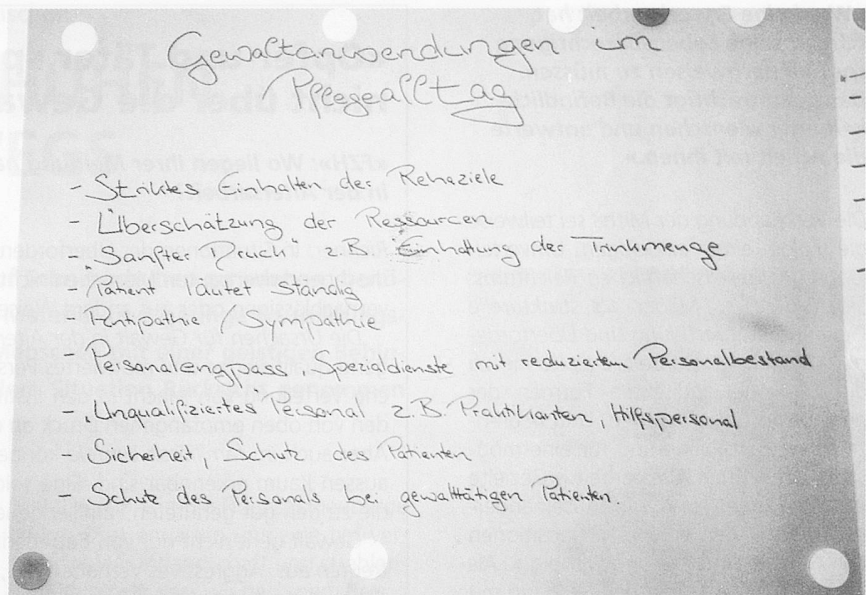 Gewaltanwendungen im
Pflegealltag
- Striktes Einhalten der Rehaziele
- Überschätzung der Ressourcen
- Sanfter Druck z.B. Einhaltung der Trinkmenge
- Patient läutet ständig
- Antipathie / Sympathie
- Personalengpass, Spezialdienste mit reduziertem Personalbestand
- Unqualifiziertes Personal z.B. Praktikanten, Hilfspersonal
- Sicherheit, Schutz des Patienten
- Schutz des Personals bei gewalttätigen Patienten.